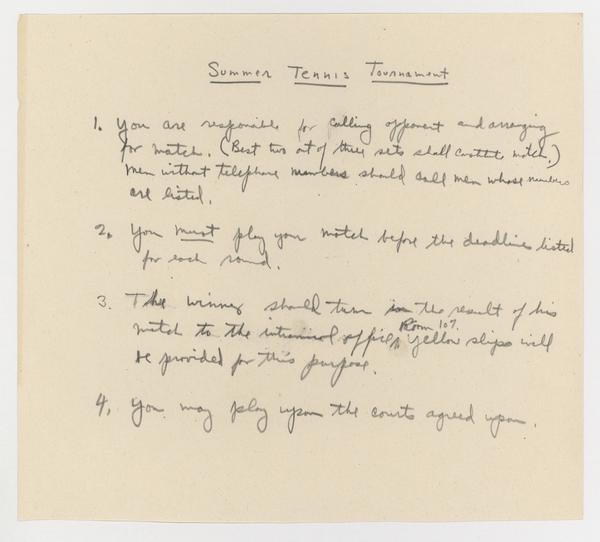 Summer Tennis Tournament
1. You are responsible for calling opponent and arranging
for match. (Best two out of three sets shall constitute match.)
Men without telephone numbers should call men whose numbers
are listed.
2. You must play your match before the deadline listed
for each round.
3. The winner should turn in the result of his
Room 107.
match to the intramural office, Yellow slips will
be provided for this purpose.
4. You may play upon the courts agreed upon.